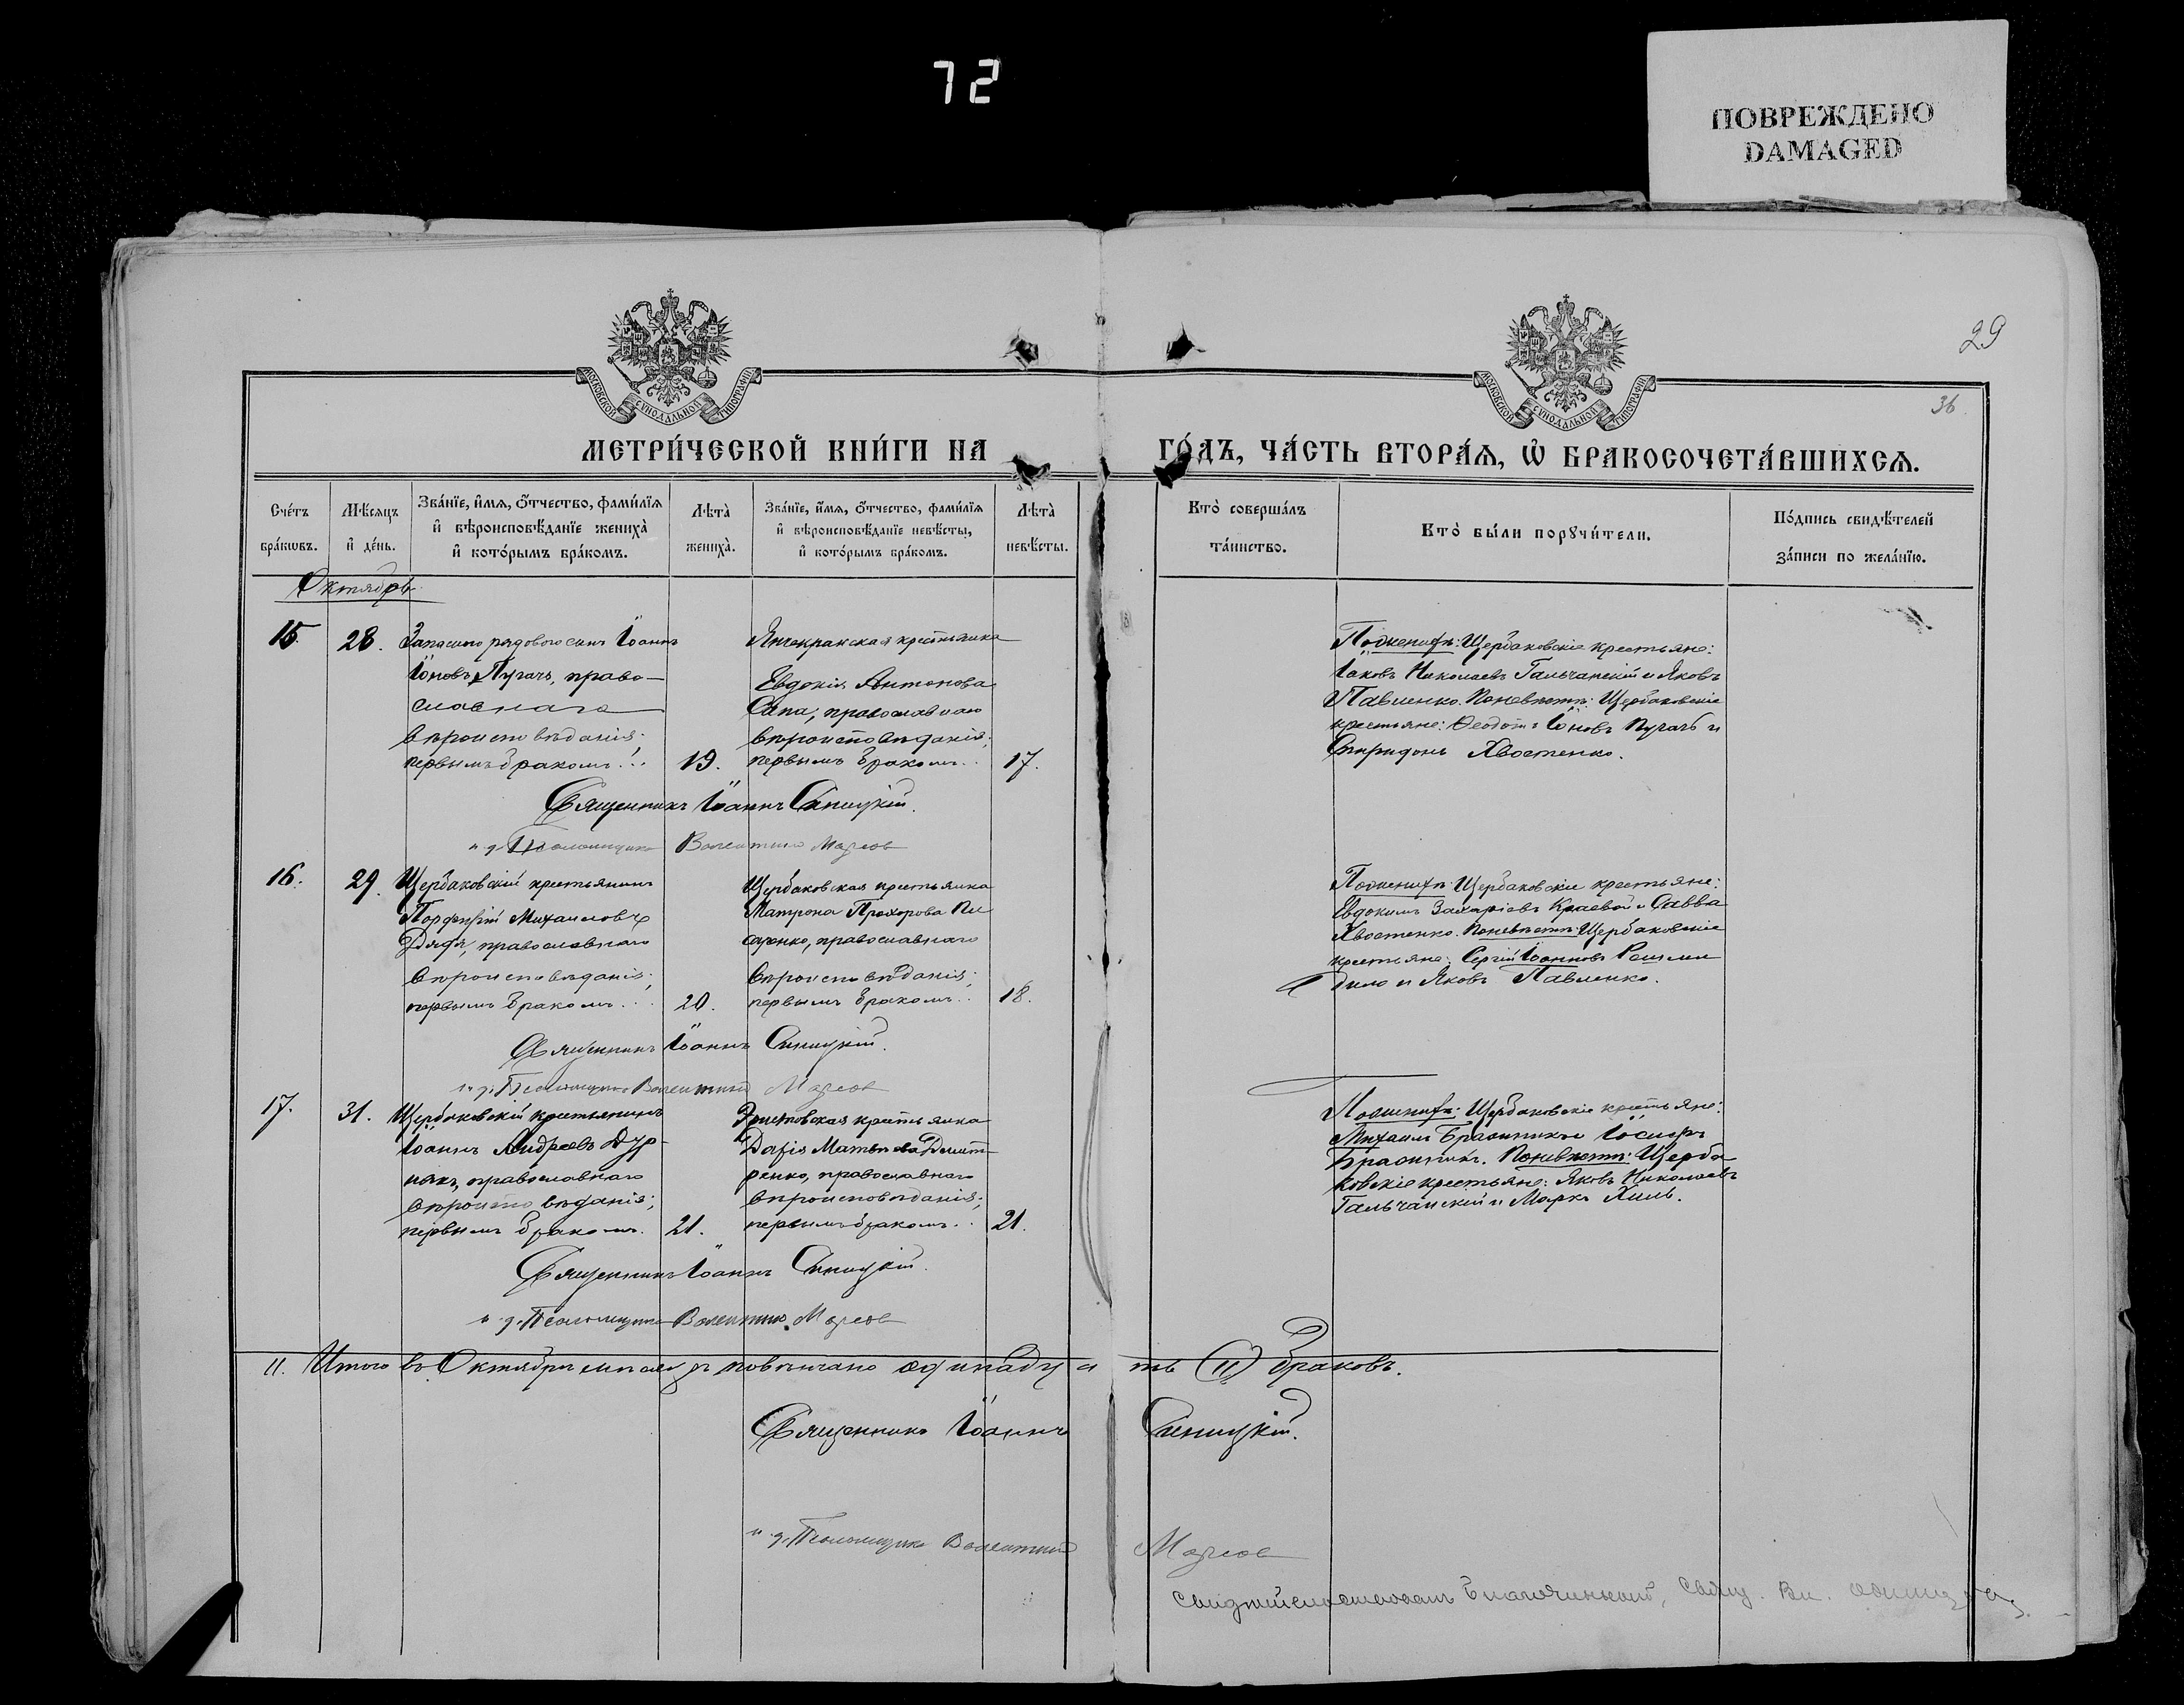 72
ПОВРЕЖДЕНО
DAMAGED
29
36.
МОСКОВСКОЙ СѴНОДАЛЬНОЙ ТИПОГРАФІИ
МОСКОВСКОЙ СѴНОДАЛЬНОЙ ТИПОГРАФІИ
МЕТРИ́ЧЕСКОЙ КНИ́ГИ НА ГО́ДЪ, ЧА́СТЬ ВТОРА́Ѧ, Ѡ҆ БРАКОСОЧЕТА́ВШИХСѦ.
Сче́тъ бра́кѡвъ.
Мѣ́сяцъ и҆ де́нь.
Зва́нїе, и҆́мѧ, ѻ҆́тчество, фами́лїѧ
и҆ вѣроисповѣ́данїе жениха̀
и҆ кото́рымъ бра́комъ.
Лѣта̀ жениха̀.
Зва́нїе, и҆́мѧ, ѻ҆́тчество, фами́лїѧ
и҆ вѣроисповѣ́данїе невѣ́сты,
и҆ кото́рымъ бра́комъ.
Лѣта̀ невѣ́сты.
Кто̀ соверша́лъ та́инство.
Кто̀ бы́ли порꙋчи́тели.
По́дпись свидѣ́телей за́писи по жела́нїю.
Октябрь
15. 28.
Запаснаго рядового сынъ Іоаннъ
Іоновъ Пугачъ, право-
славнаго
вѣроисповѣданія;
первымъ бракомъ...
19.
крестьянка
Евдокія Антонова
Сапа, православнаго
вѣроисповѣданія;
первымъ бракомъ..
17.
По женихѣ: Щербаковскіе крестьяне:
Іаковъ Николаевъ Гальчанскій и Яковъ
Павленко. По невѣстѣ: Щербаковскіе
крестьяне: Ѳеодотъ Іоновъ Пугачъ и
Спиридонъ Хвостенко.
Священникъ Іоаннъ Синицкій.
и. д. Псаломщика Валентинъ
16. 29.
Щербаковскій крестьянинъ
Порфирій Михаиловъ
православнаго
вѣроисповѣданія;
первымъ бракомъ...
20.
Щербаковская крестьянка
Матрона Прохорова Пи
саренко, православнаго
вѣроисповѣданія;
первымъ бракомъ..
18.
По женихѣ: Щербаковскіе крестьяне:
Евдокимъ Захаріевъ Краевой и Савва
Хвостенко. По невѣстѣ: Щербаковскіе
крестьяне: Сергій Іоанновъ
и Яковъ Павленко.
Священникъ Іоаннъ Синицкій.
и. д. Псаломщика Валентинъ
17. 31.
Щербаковскій крестьянинъ
Іоаннъ Андреевъ Дур-
накъ, православнаго
вѣроисповѣданія;
первымъ бракомъ.
21.
крестьянка
Дарія Матвѣева Дмит
ренко, православнаго
вѣроисповѣданія;
первымъ бракомъ..
21.
По женихѣ: Щербаковскіе крестьяне:
Михаилъ и Іосифъ
По невѣстѣ: Щерба
ковскіе крестьяне: Яковъ Николаевъ
Гальчанскій и Маркъ
Священникъ Іоаннъ Синицкій.
и. д. Псаломщика Валентинъ
11. Итого въ Октябрѣ мѣсяцѣ повѣнчано одинадцать (11) браковъ.
Священникъ Іоаннъ Синицкій.
и. д. Псаломщика Валентинъ
Свидѣтельствовалъ Благочинный, Свящ. Вл.